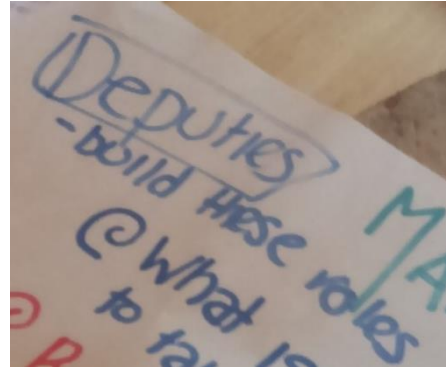 Deputies
-build these roles
@ What is
to
MA